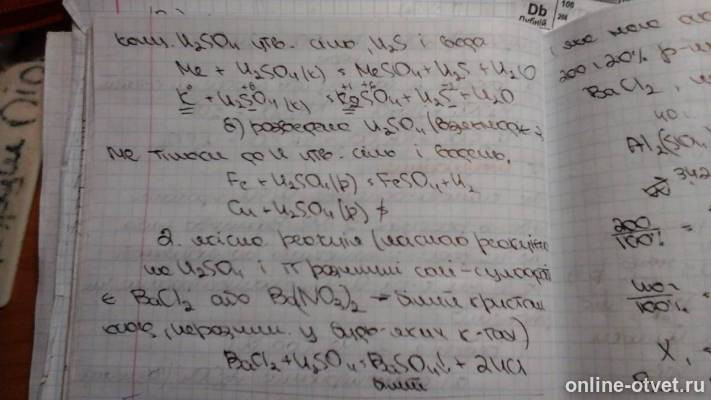 конц. H2SO4 утв. сіль, H2S і вода
Me + H2SO4(к) = MeSO4 + H2S + H2O
K⁰ + H2S⁺⁶O4(к) = K2⁺¹S⁺⁶O4 + H2S⁻² + H2O
б) розведена H2SO4 (взаємодіє з
Ме тільки до H утв. сіль і водень.
Fe + H2SO4(р) = FeSO4 + H2
Cu + H2SO4(р) ≠
2. якісна реакція (якісною реакцією
на H2SO4 і її розчинні солі - сульфати
є BaCl2 або Ba(NO3)2 - білий кристал
осад, нерозчин. у будь-яких к-тах)
BaCl2 + H2SO4 = BaSO4↓ + 2HCl
білий
Db
100
268
200 г 20% р-ну
BaCl2
40
Al2(SO4
342
200
100% =
100% =
X,
online-otvet.ru